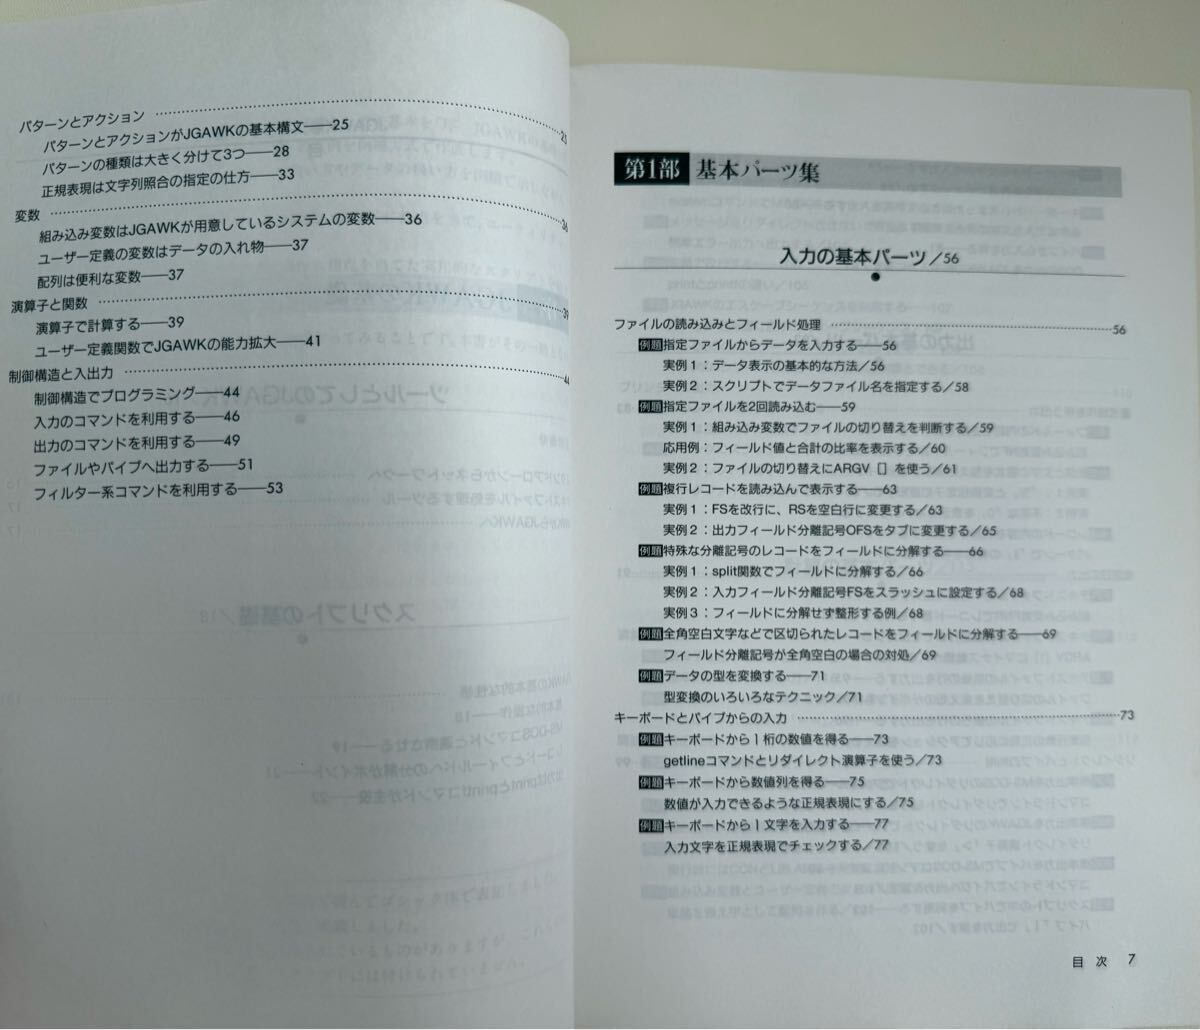 パターンとアクション
パターンとアクションがJGAWKの基本構文——25
パターンの種類は大きく分けて3つ——28
正規表現は文字列照合の指定の仕方——33
変数 36
組み込み変数はJGAWKが用意しているシステムの変数——36
ユーザー定義の変数はデータの入れ物——37
配列は便利な変数——37
演算子と関数 39
演算子で計算する——39
ユーザー定義関数でJGAWKの能力拡大——41
制御構造と入出力
制御構造でプログラミング——44
入力のコマンドを利用する——46
出力のコマンドを利用する——49
ファイルやパイプへ出力する——51
フィルター系コマンドを利用する——53
第1部 基本パーツ集
入力の基本パーツ/56
ファイルの読み込みとフィールド処理 56
例題 指定ファイルからデータを入力する——56
実例1：データ表示の基本的な方法/56
実例2：スクリプトでデータファイル名を指定する/58
例題 指定ファイルを2回読み込む——59
実例1：組み込み変数でファイルの切り替えを判断する/59
応用例：フィールド値と合計の比率を表示する/60
実例2：ファイルの切り替えにARGV［］を使う/61
例題 複行レコードを読み込んで表示する——63
実例1：FSを改行に、RSを空白行に変更する/63
実例2：出力フィールド分離記号OFSをタブに変更する/65
例題 特殊な分離記号のレコードをフィールドに分解する——66
実例1：split関数でフィールドに分解する/66
実例2：入力フィールド分離記号FSをスラッシュに設定する/68
実例3：フィールドに分解せず整形する例/68
例題 全角空白文字などで区切られたレコードをフィールドに分解する——69
フィールド分離記号が全角空白の場合の対処/69
例題 データの型を変換する——71
型変換のいろいろなテクニック/71
キーボードとパイプからの入力 73
例題 キーボードから1桁の数値を得る——73
getlineコマンドとリダイレクト演算子を使う/73
例題 キーボードから数値列を得る——75
数値が入力できるような正規表現にする/75
例題 キーボードから1文字を入力する——77
入力文字を正規表現でチェックする/77
目 次 7